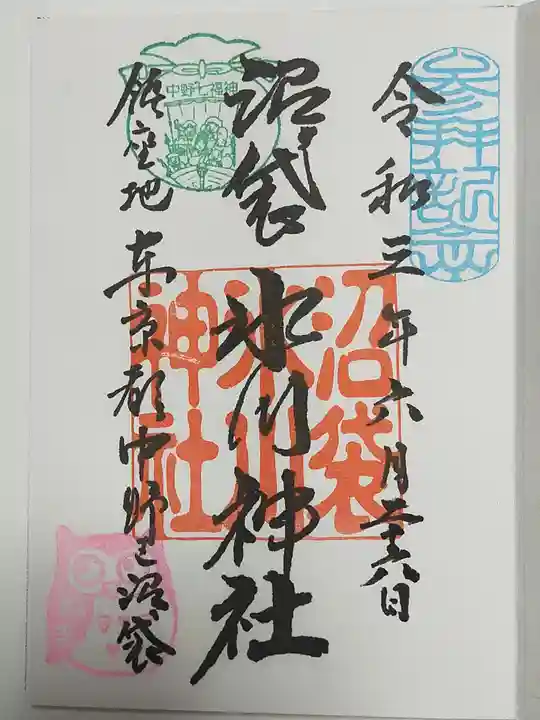 参拝記念
令和三年六月二十八日
沼袋氷川神社
沼袋
氷川
神社
中野七福神
鎮座地 東京都中野区沼袋